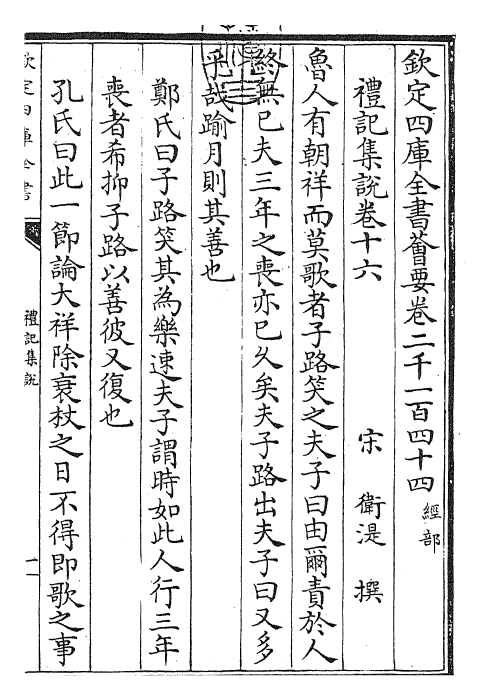 欽定四庫全書薈要卷二千一百四十四 經部
禮記集說卷十六 宋 衛湜 撰
魯人有朝祥而莫歌者子路笑之夫子曰由爾責於人
終無已夫三年之喪亦已久矣夫子路出夫子曰又多
乎哉踰月則其善也
鄭氏曰子路笑其為樂速夫子謂時如此人行三年
喪者希抑子路以善彼又復也
孔氏曰此一節論大祥除衰杖之日不得即歌之事
欽定四庫全書
禮記集說
一